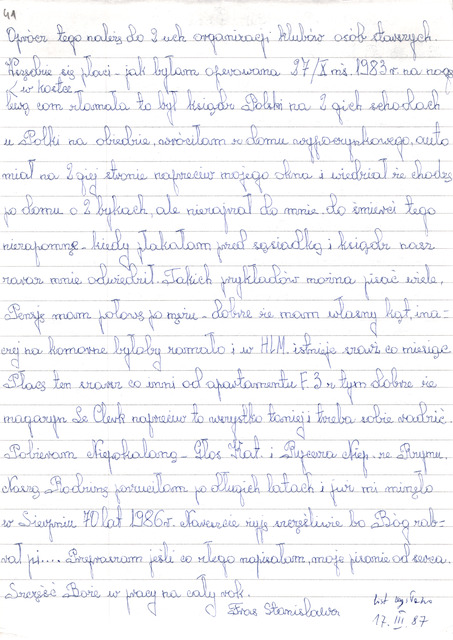 4A
Oprócz tego należę do 2 uch organizacji klubów osób starszych.
Wszędzie się płaci - jak byłam operowana 27/X mś. 1983 r. na nogę
w kostce
lewą com złamała to był ksiądz Polski na 2 gich schodach
u Polki na obiedzie, wróciłam z domu wypoczynkowego, auto
miał na 2 giej stronie naprzeciw mojego okna i wiedział że chodzę
po domu o 2 bykach, ale niezajrzał do mnie do śmierci tego
niezapomnę - kiedy płakałam przed sąsiadką i ksiądz nasz
zaraz mnie odwiedził. Takich przykładów można pisać wiele,
Penzję mam połowę po mężu - dobrze że mam własny kąt, ina-
czej na komorne byłoby zamało i w HLM. istnieje szarż co miesiąc
Płacę ten szarż co inni od apartamentu F. 3 z tym dobrze że
magazyn Le Clerk naprzeciw to wszystko taniej i trzeba sobie radzić.
Pobieram Niepokalaną - Głos Kat. i Rycerza Niep. ze Rzymu.
Naszą Rodzinę porzuciłam po długich latach i już mi minęło
w Sierpniu 70 lat 1986 r. Nareszcie żyję szczęśliwie bo Bóg zab-
rał pi.... Przepraszam jeśli co złego napisałam, moje pisanie od serca.
Szczęść Boże w pracy na cały rok.
Fras Stanisława
list wysłano
17. III. 87